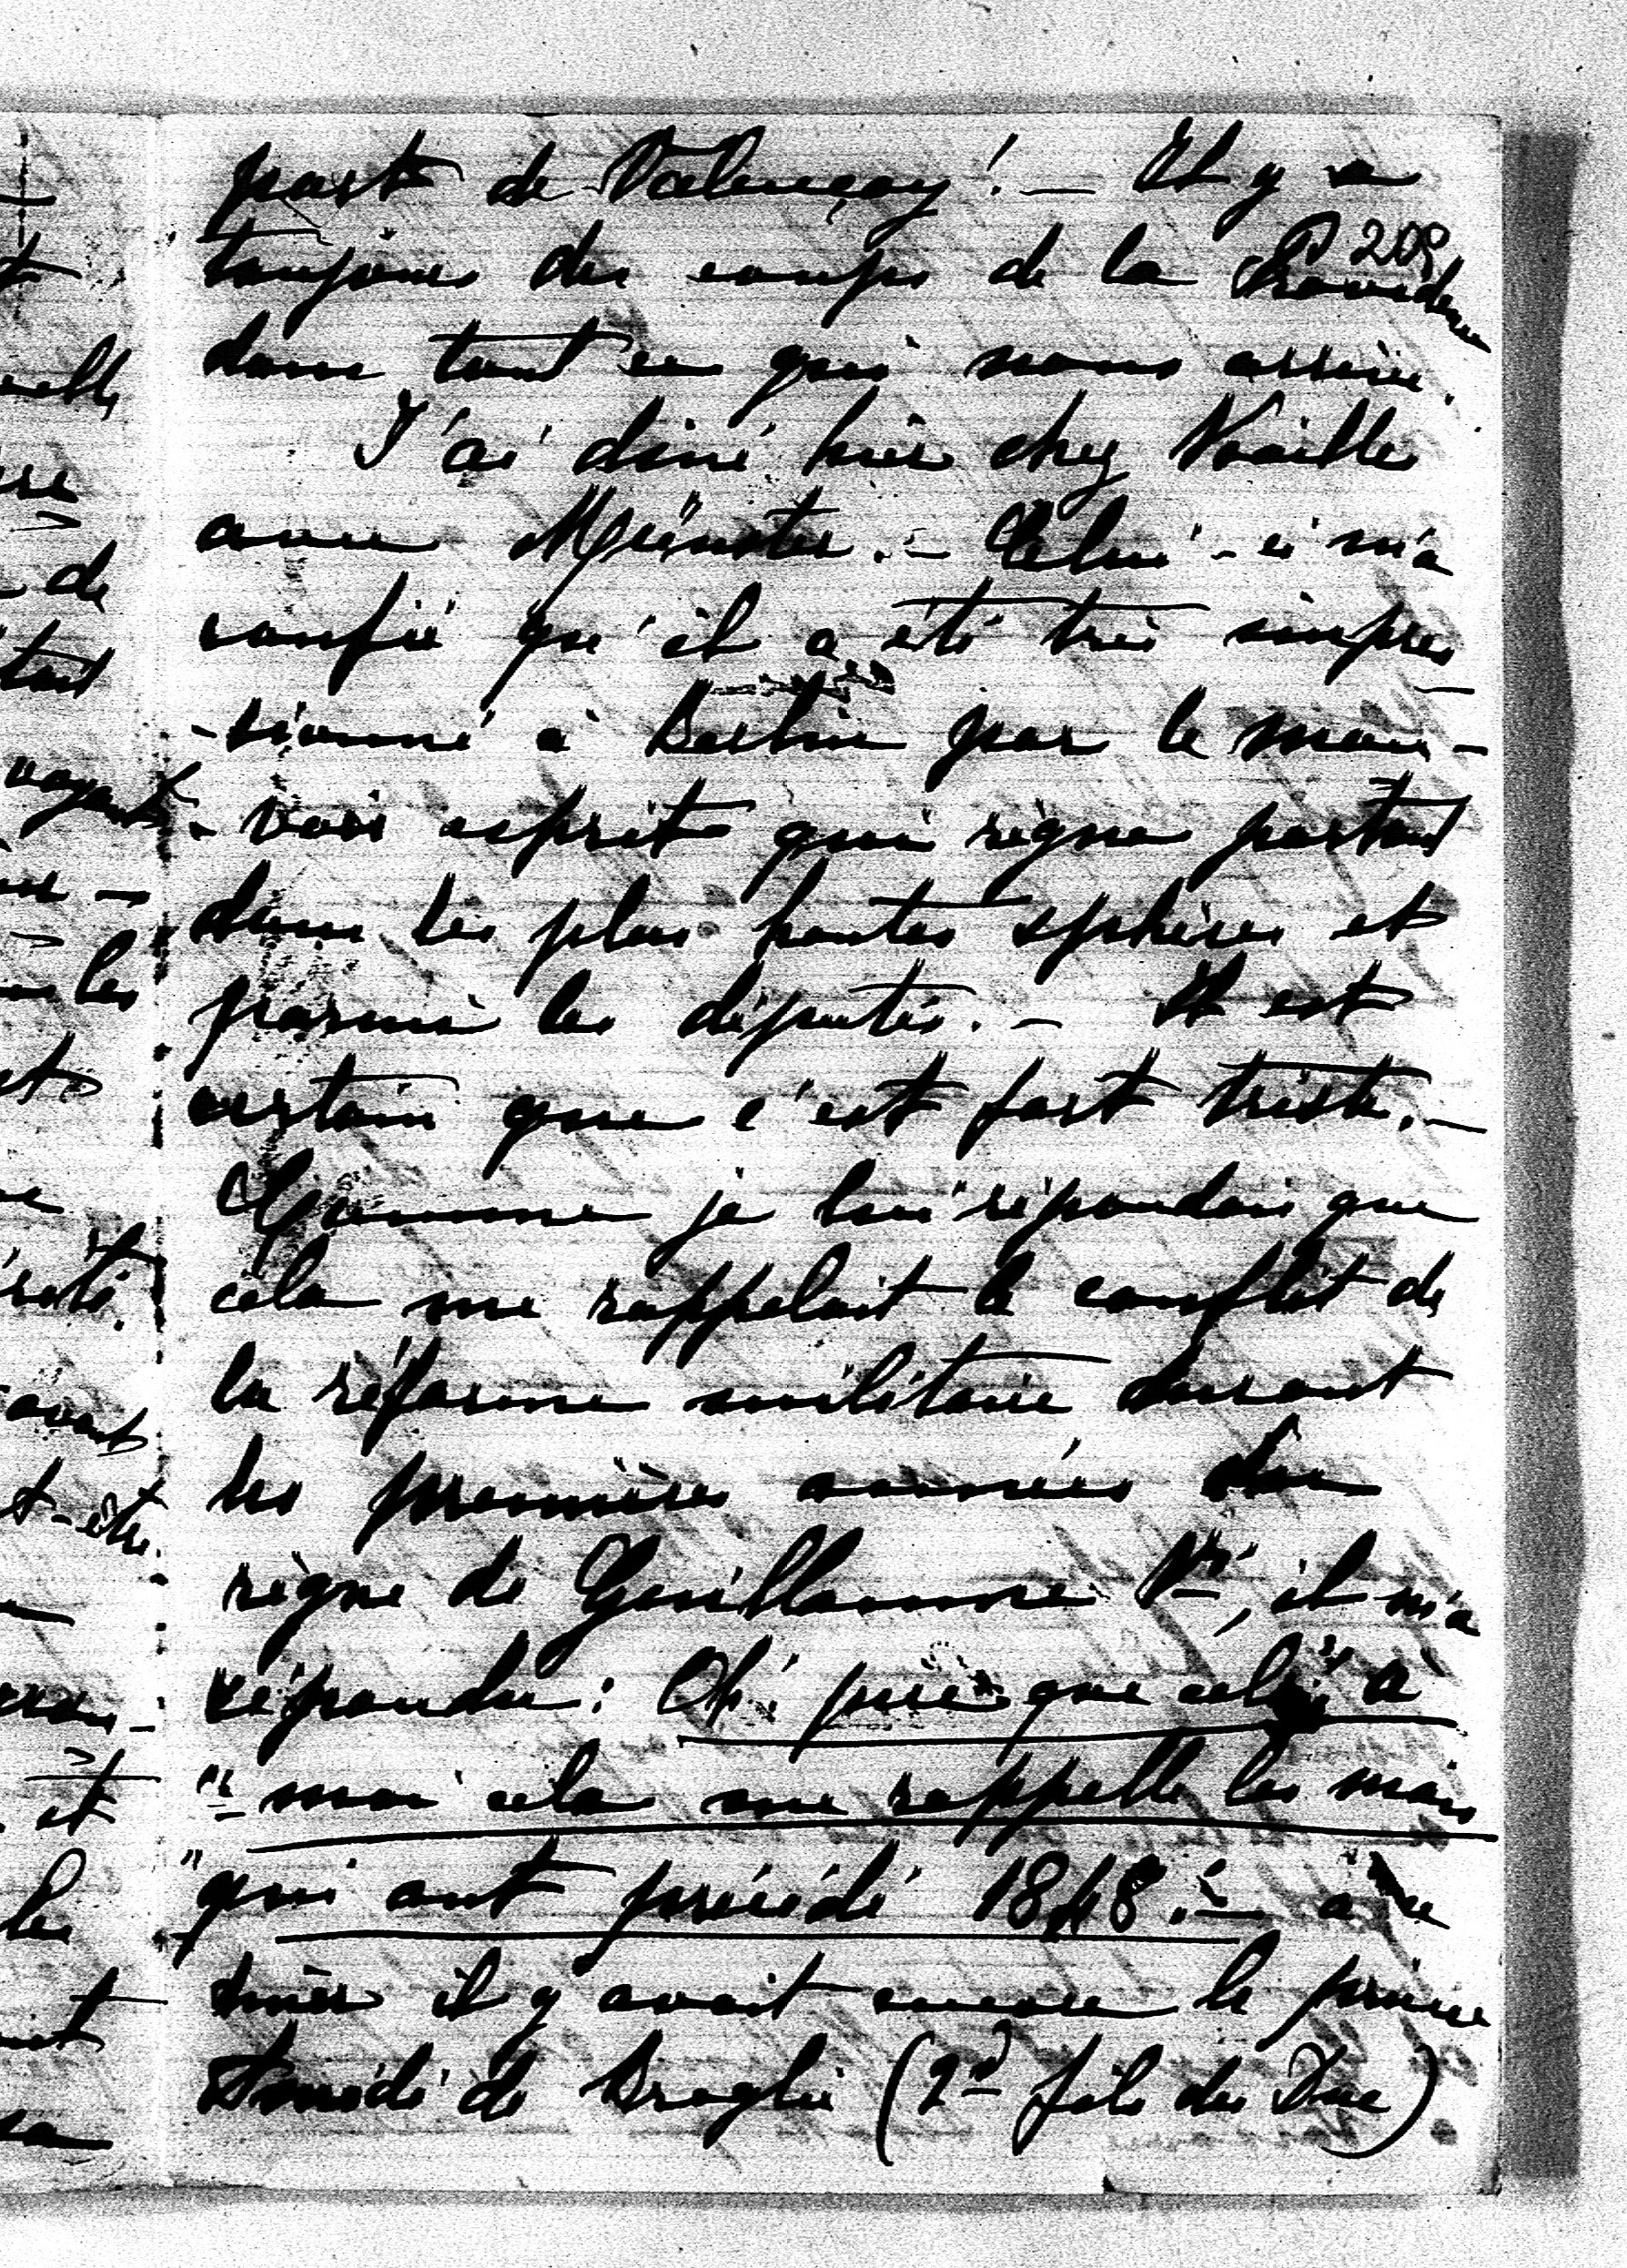 part de Valençay! — Il y a
209
toujours des coups de la Providence
dans tout ce qui nous arrive.
J'ai diné hier chez Noailles
avec Münster. — Celui-ci m'a
confié qu'il a été très impres-
-sionné à Berlin par le mau-
-vais esprit qui règne partout
dans les plus hautes sphères et
parmi les députés. — Il est
certain que c'est fort triste. —
Comme je lui répondais que
cela me rappelait le conflit de
la réforme militaire durant
les premières années du
règne de Guillaume Ier, il m'a
répondu: Oh! pire que cela! à
"moi cela me rappelle les mois
"qui ont précédé 1848. — à ce
diner il y avait encore le prince
Amédé de Broglie (2d fils du Duc)